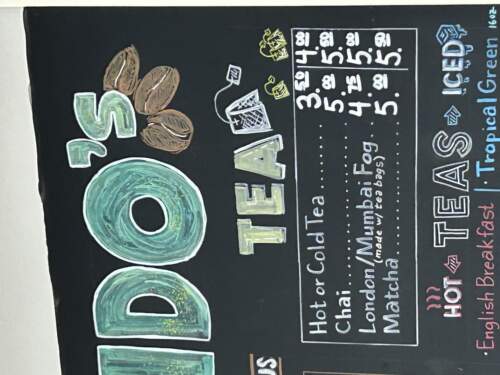 DO'S
TEA
Hot or Cold Tea .......... 3.50 4.00
Chai .......... 5.00
London/Mumbai Fog . 4.75
(made w/ tea bags)
Matcha .......... 5.00
HOT TEAS ICED
• English Breakfast | Tropical Green 16oz